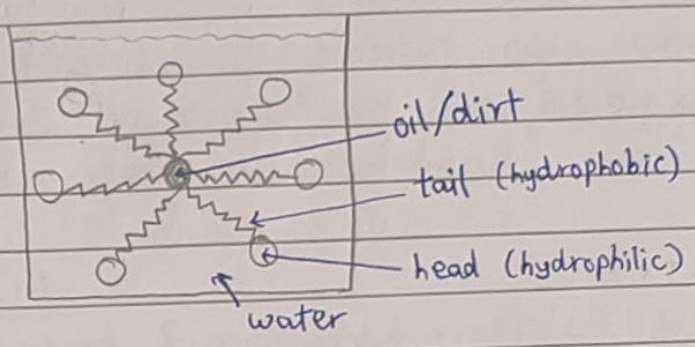 oil/dirt
tail (hydrophobic)
head (hydrophilic)
water